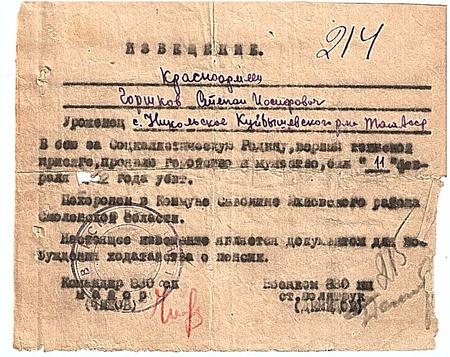 ИЗВЕЩЕНИЕ.
214
Красноармеец
Горшков Степан Иосифович
Уроженец с. Никольское Куйбышевского р-на
В бою за Социалистическую Родину, верный воинской
присяге, проявив геройство и мужество, был "11" фев-
раля 42 года убит.
Похоронен в Коммуне Юхновского района
Смоленской Области.
Настоящее извещение является документом для воз-
буждения ходатайства о пенсии.
Командир 880 сп Военком 880 сп
майор ст. политрук
215